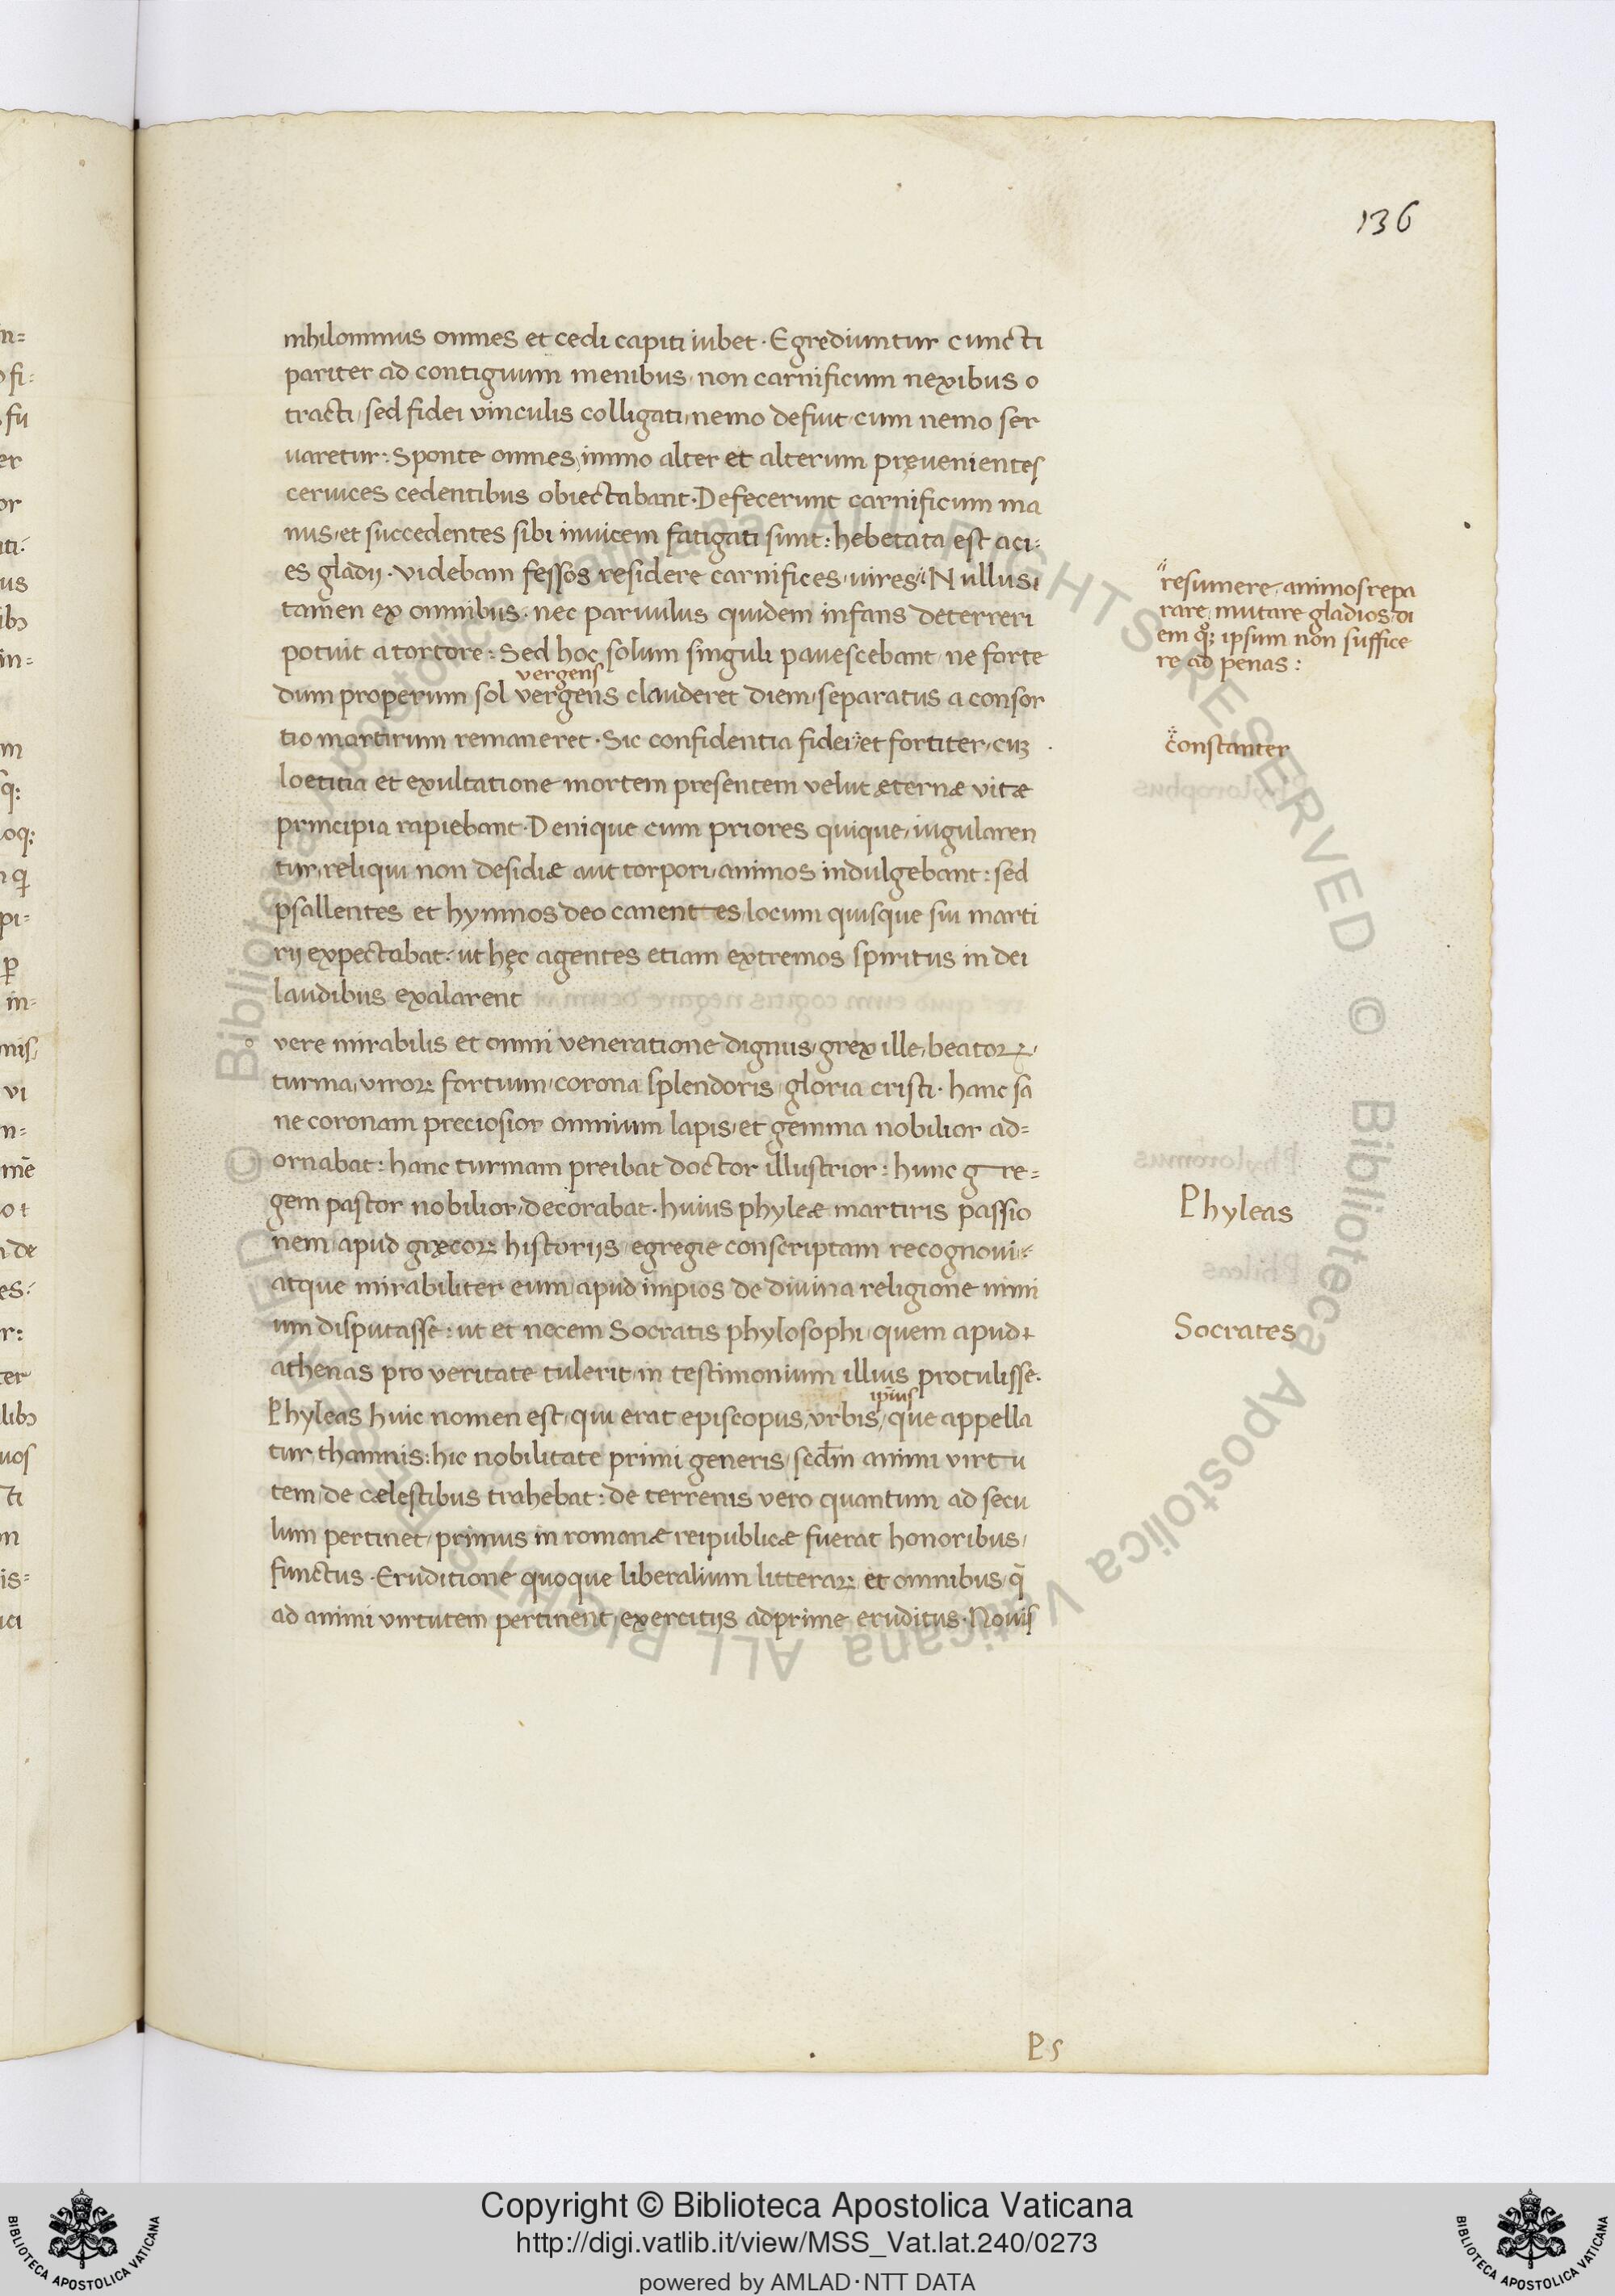 136
nihilominus omnes et cedi capiti iubet · Egrediuntur cuncti
pariter ad contiguum menibus, non carnificum nexibus o
tracti, sed fidei vinculis colligati, nemo defuit, cum nemo ser
uaretur: Sponte omnes, immo alter et alterum pręuenientes
ceruices cedentibus obiectabant · Defecerunt carnificum ma
nus, et succedentes sibi inuicem fatigati sunt: hebetata est aci:
es gladij · videbam fessos residere carnifices, uires, Nullus,
tamen ex omnibus · nec paruulus quidem infans deterreri
potuit a tortore: Sed hoc solum singuli pauescebant, ne forte
vergens
dum properum sol vergens clauderet diem, separatus a consor
tio martirum remaneret · Sic confidentia fidei, et fortiter, cuꝫ
loetitia et exultatione mortem presentem velut æternæ vitæ
principia rapiebant · Denique cum priores quique, iugularen
tur, reliqui non desidiæ aut torpori, animos indulgebant: sed
psallentes et hymnos deo canentes, locum quisque sui marti
rij expectabat: ut hęc agentes etiam extremos spiritus in dei
laudibus exalarent
vere mirabilis et omni veneratione dignus, grex ille, beatoꝝ,
turma, viroꝝ fortium, corona splendoris, gloria cristi · hanc sa
ne coronam preciosior omnium lapis, et gemma nobilior ad=
ornabat: hanc turmam preibat doctor illustrior: hunc gre=
gem pastor nobilior, decorabat · huius phyleæ martiris passio
nem, apud gręcoꝝ historijs, egregie conscriptam recognoui,
atque mirabiliter eum, apud impios de diuina religione nimi
um disputasse: ut et necem Socratis phylosophi, quem apud
athenas pro veritate tulerit, in testimonium illius protulisse.
ip̄ius
Phyleas huic nomen est, qui erat episcopus, vrbis, que appella
tur thamnis: hic nobilitate primi generis, secd̄m animi virtu
tem, de cælestibus trahebat: de terrenis vero quantum ad secu
lum pertinet, primus in romanæ reipublicæ fuerat honoribus,
functus · Eruditione quoque liberalium litteraꝝ et omnibus, q̄
ad animi virtutem pertinent, exercitijs adprime eruditus · Nouis
resumere, animos repa
rare, mutare gladios, di
em qͦꝫ ipsum non suffice
re ad penas:
constanter
Phyleas
Socrates
Ps
Copyright © Biblioteca Apostolica Vaticana
http://digi.vatlib.it/view/MSS_Vat.lat.240/0273
powered by AMLAD·NTT DATA
BIBLIOTECA APOSTOLICA VATICANA
BIBLIOTECA APOSTOLICA VATICANA